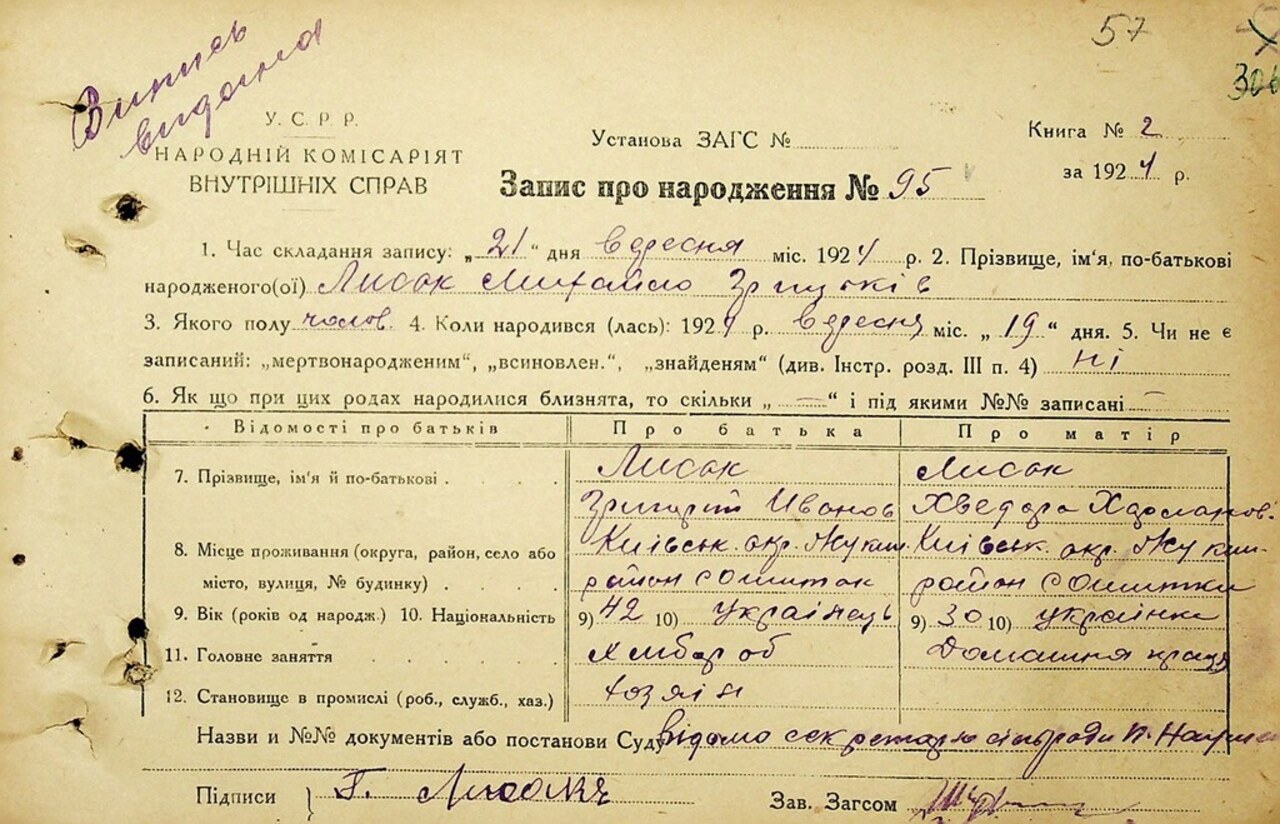 57
306
Випись
видана
У. С. Р. Р.
НАРОДНІЙ КОМІСАРІЯТ
ВНУТРІШНІХ СПРАВ
Установа ЗАГС №
Книга № 2
за 1924 р.
Запис про народження № 95
1. Час складання запису: „21“ дня вересня міс. 1924 р. 2. Прізвище, ім'я, по-батькові
народженого(ої) Лисак Михайло Григорків
3. Якого полу чолов. 4. Коли народився (лась): 1924 р. вересня міс. „19“ дня. 5. Чи не є
записаний: „мертвонародженим“, „всиновлен.“, „знайденям“ (див. Інстр. розд. III п. 4) ні
6. Як що при цих родах народилися близнята, то скільки „ — “ і під якими №№ записані —
Відомості про батьків Про батька Про матір
7. Прізвище, ім'я й по-батькові Лисак Лисак
Григорій Иванов Хведора
8. Місце проживання (округа, район, село або Київськ. окр. Київськ. окр.
місто, вулиця, № будинку) район с Ошиток район с Ошитки
9. Вік (років од народж.) 10. Національність 9) 42 10) українець 9) 30 10) українка
11. Головне заняття хлібороб Домашня праця
12. Становище в промислі (роб., служб., хаз.) хозяін
Назви и №№ документів або постанови Суду відомо секретарю сільради
Підписи Г. Лисак
Зав. Загсом